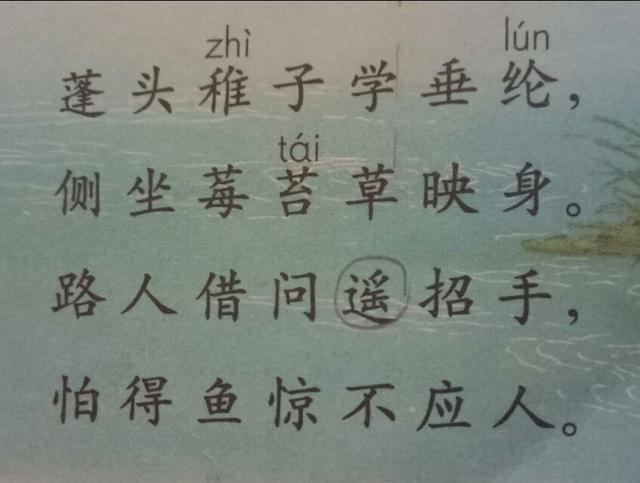 zhì lún
蓬头稚子学垂纶，
tái
侧坐莓苔草映身。
路人借问遥招手，
怕得鱼惊不应人。